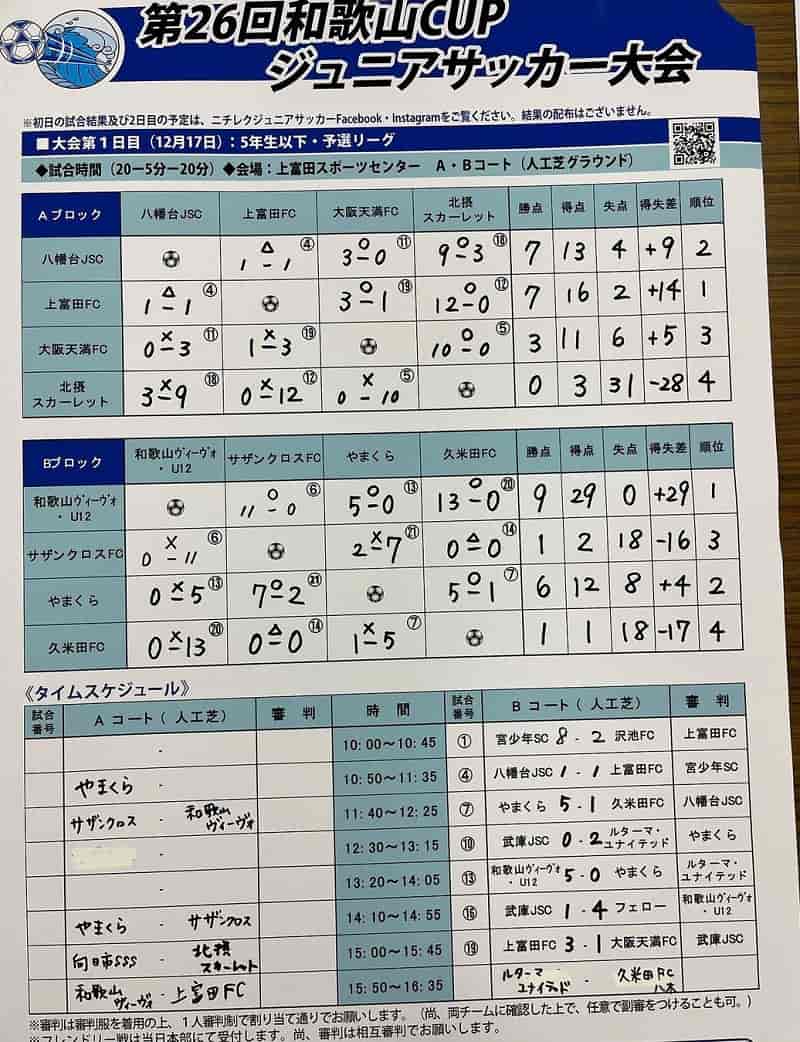 第26回和歌山CUP
ジュニアサッカー大会
※初日の試合結果及び2日目の予定は、ニチレクジュニアサッカーFacebook・Instagramをご覧ください。結果の配布はございません。
■大会第1日目（12月17日）：5年生以下・予選リーグ
◆試合時間（20－5分－20分）◆会場：上富田スポーツセンター　A・Bコート（人工芝グラウンド）
Aブロック 八幡台JSC 上富田FC 大阪天満FC 北摂スカーレット 勝点 得点 失点 得失差 順位
八幡台JSC 1△1 ④ 3○0 ⑪ 9○3 ⑱ 7 13 4 +9 2
上富田FC 1△1 ④ 3○1 ⑲ 12○0 ⑫ 7 16 2 +14 1
大阪天満FC 0×3 ⑪ 1×3 ⑲ 10○0 ⑤ 3 11 6 +5 3
北摂スカーレット 3×9 ⑱ 0×12 ⑫ 0×10 ⑤ 0 3 31 -28 4
Bブロック 和歌山ヴィーヴォ・U12 サザンクロスFC やまくら 久米田FC 勝点 得点 失点 得失差 順位
和歌山ヴィーヴォ・U12 11○0 ⑥ 5○0 ⑬ 13○0 ⑳ 9 29 0 +29 1
サザンクロスFC 0×11 ⑥ 2×7 ㉑ 0△0 ⑭ 1 2 18 -16 3
やまくら 0×5 ⑬ 7○2 ㉑ 5○1 ⑦ 6 12 8 +4 2
久米田FC 0×13 ⑳ 0△0 ⑭ 1×5 ⑦ 1 1 18 -17 4
《タイムスケジュール》
試合番号 Aコート（人工芝） 審判 時間 試合番号 Bコート（人工芝） 審判
- 10:00～10:45 ① 宮少年SC 8 - 2 沢池FC 上富田FC
やまくら - 10:50～11:35 ④ 八幡台JSC 1 - 1 上富田FC 宮少年SC
サザンクロス - 和歌山ヴィーヴィ 11:40～12:25 ⑦ やまくら 5 - 1 久米田FC 八幡台JSC
12:30～13:15 ⑩ 武庫JSC 0 - 2 ルターマ・ユナイテッド やまくら
- 13:20～14:05 ⑬ 和歌山ヴィーヴォ・U12 5 - 0 やまくら ルターマ・ユナイテッド
やまくら - サザンクロス 14:10～14:55 ⑯ 武庫JSC 1 - 4 フェロー 和歌山ヴィーヴォ・U12
向日市SSS - 北摂スカーレット 15:00～15:45 ⑲ 上富田FC 3 - 1 大阪天満FC 武庫JSC
和歌山ヴィーヴィ - 上富田FC 15:50～16:35 ルターマユナイテッド - 久米田FC
※審判は審判服を着用の上、1人審判制で割り当て通りでお願いします。（尚、両チームに確認した上で、任意で副審をつけることも可。）
※フレンドリー戦は当日本部にて受付します。尚、審判は相互審判でお願いします。